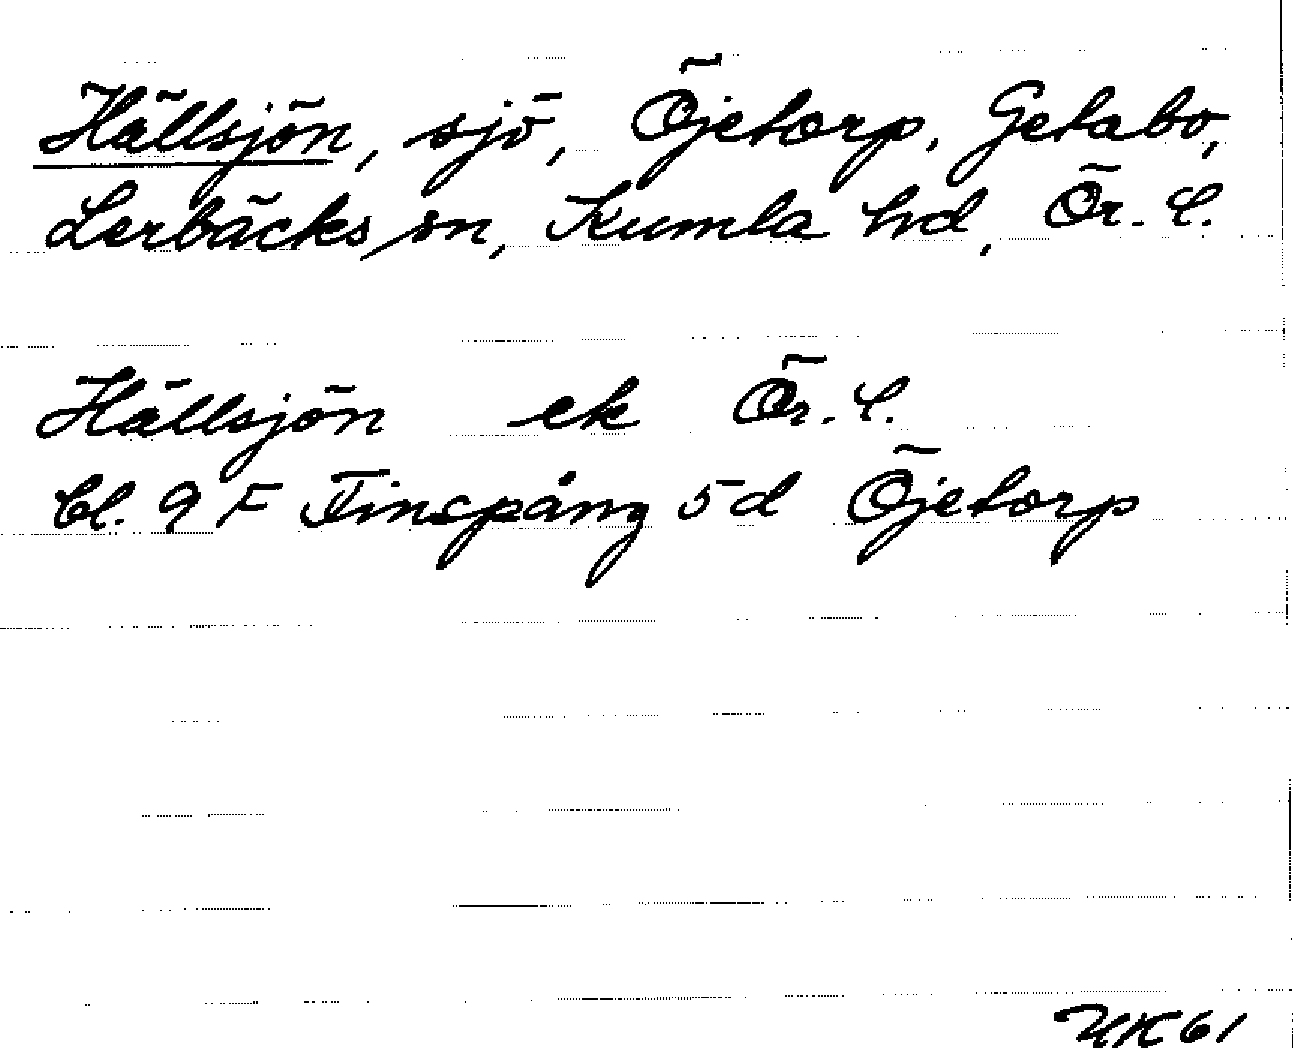 Hällsjön, sjö, Öjetorp, Getabo,
Lerbäcks sn, Kumla hd, Ör. l.
Hällsjön ek Ör. l.
bl. 9 F Finspång 5 d Öjetorp
HK 61